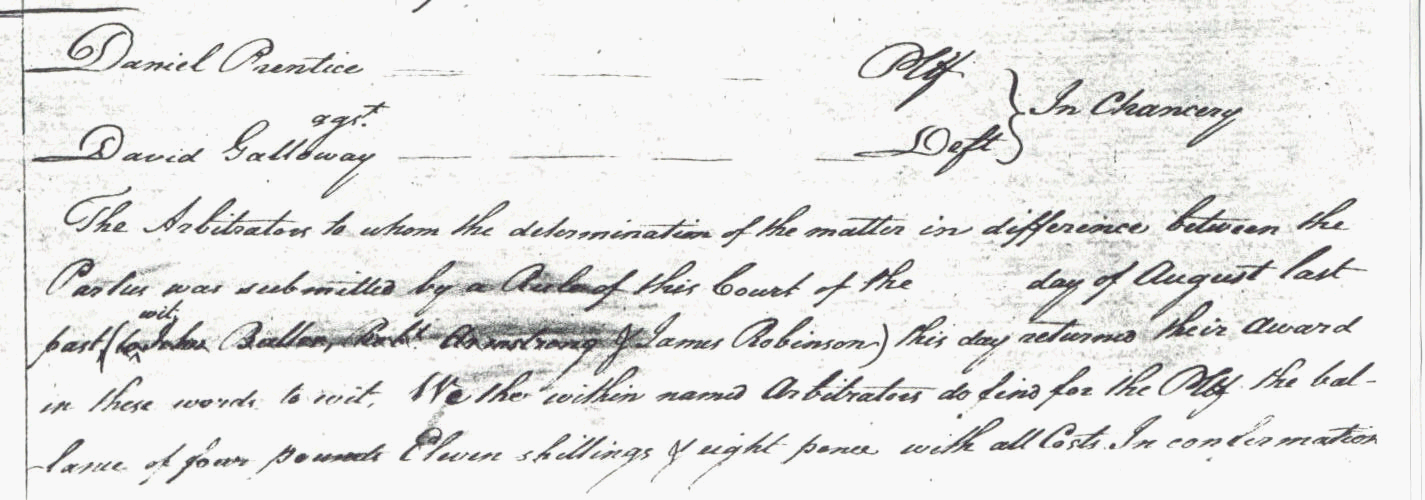 Daniel Prentice Pltf
agst. In Chancery
David Galloway Deft
The Arbitrators to whom the determination of the matter in difference between the
Parties was submitted by a Rule of this Court of the day of August last
wit,
past, (to John Robt Armstrong & James Robinson) this day returned their award
in these words to wit, We the within named Arbitrators do find for the Pltf the bal-
lance of four pounds Eleven shillings & eight pence with all Costs. In confirmation